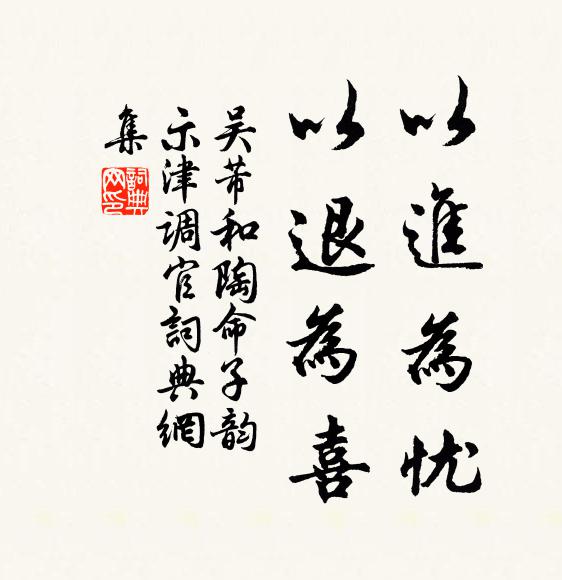 以進為忧
以退為喜
吴芾和陶命子韵
示津调官詞典網
集
詞典網印